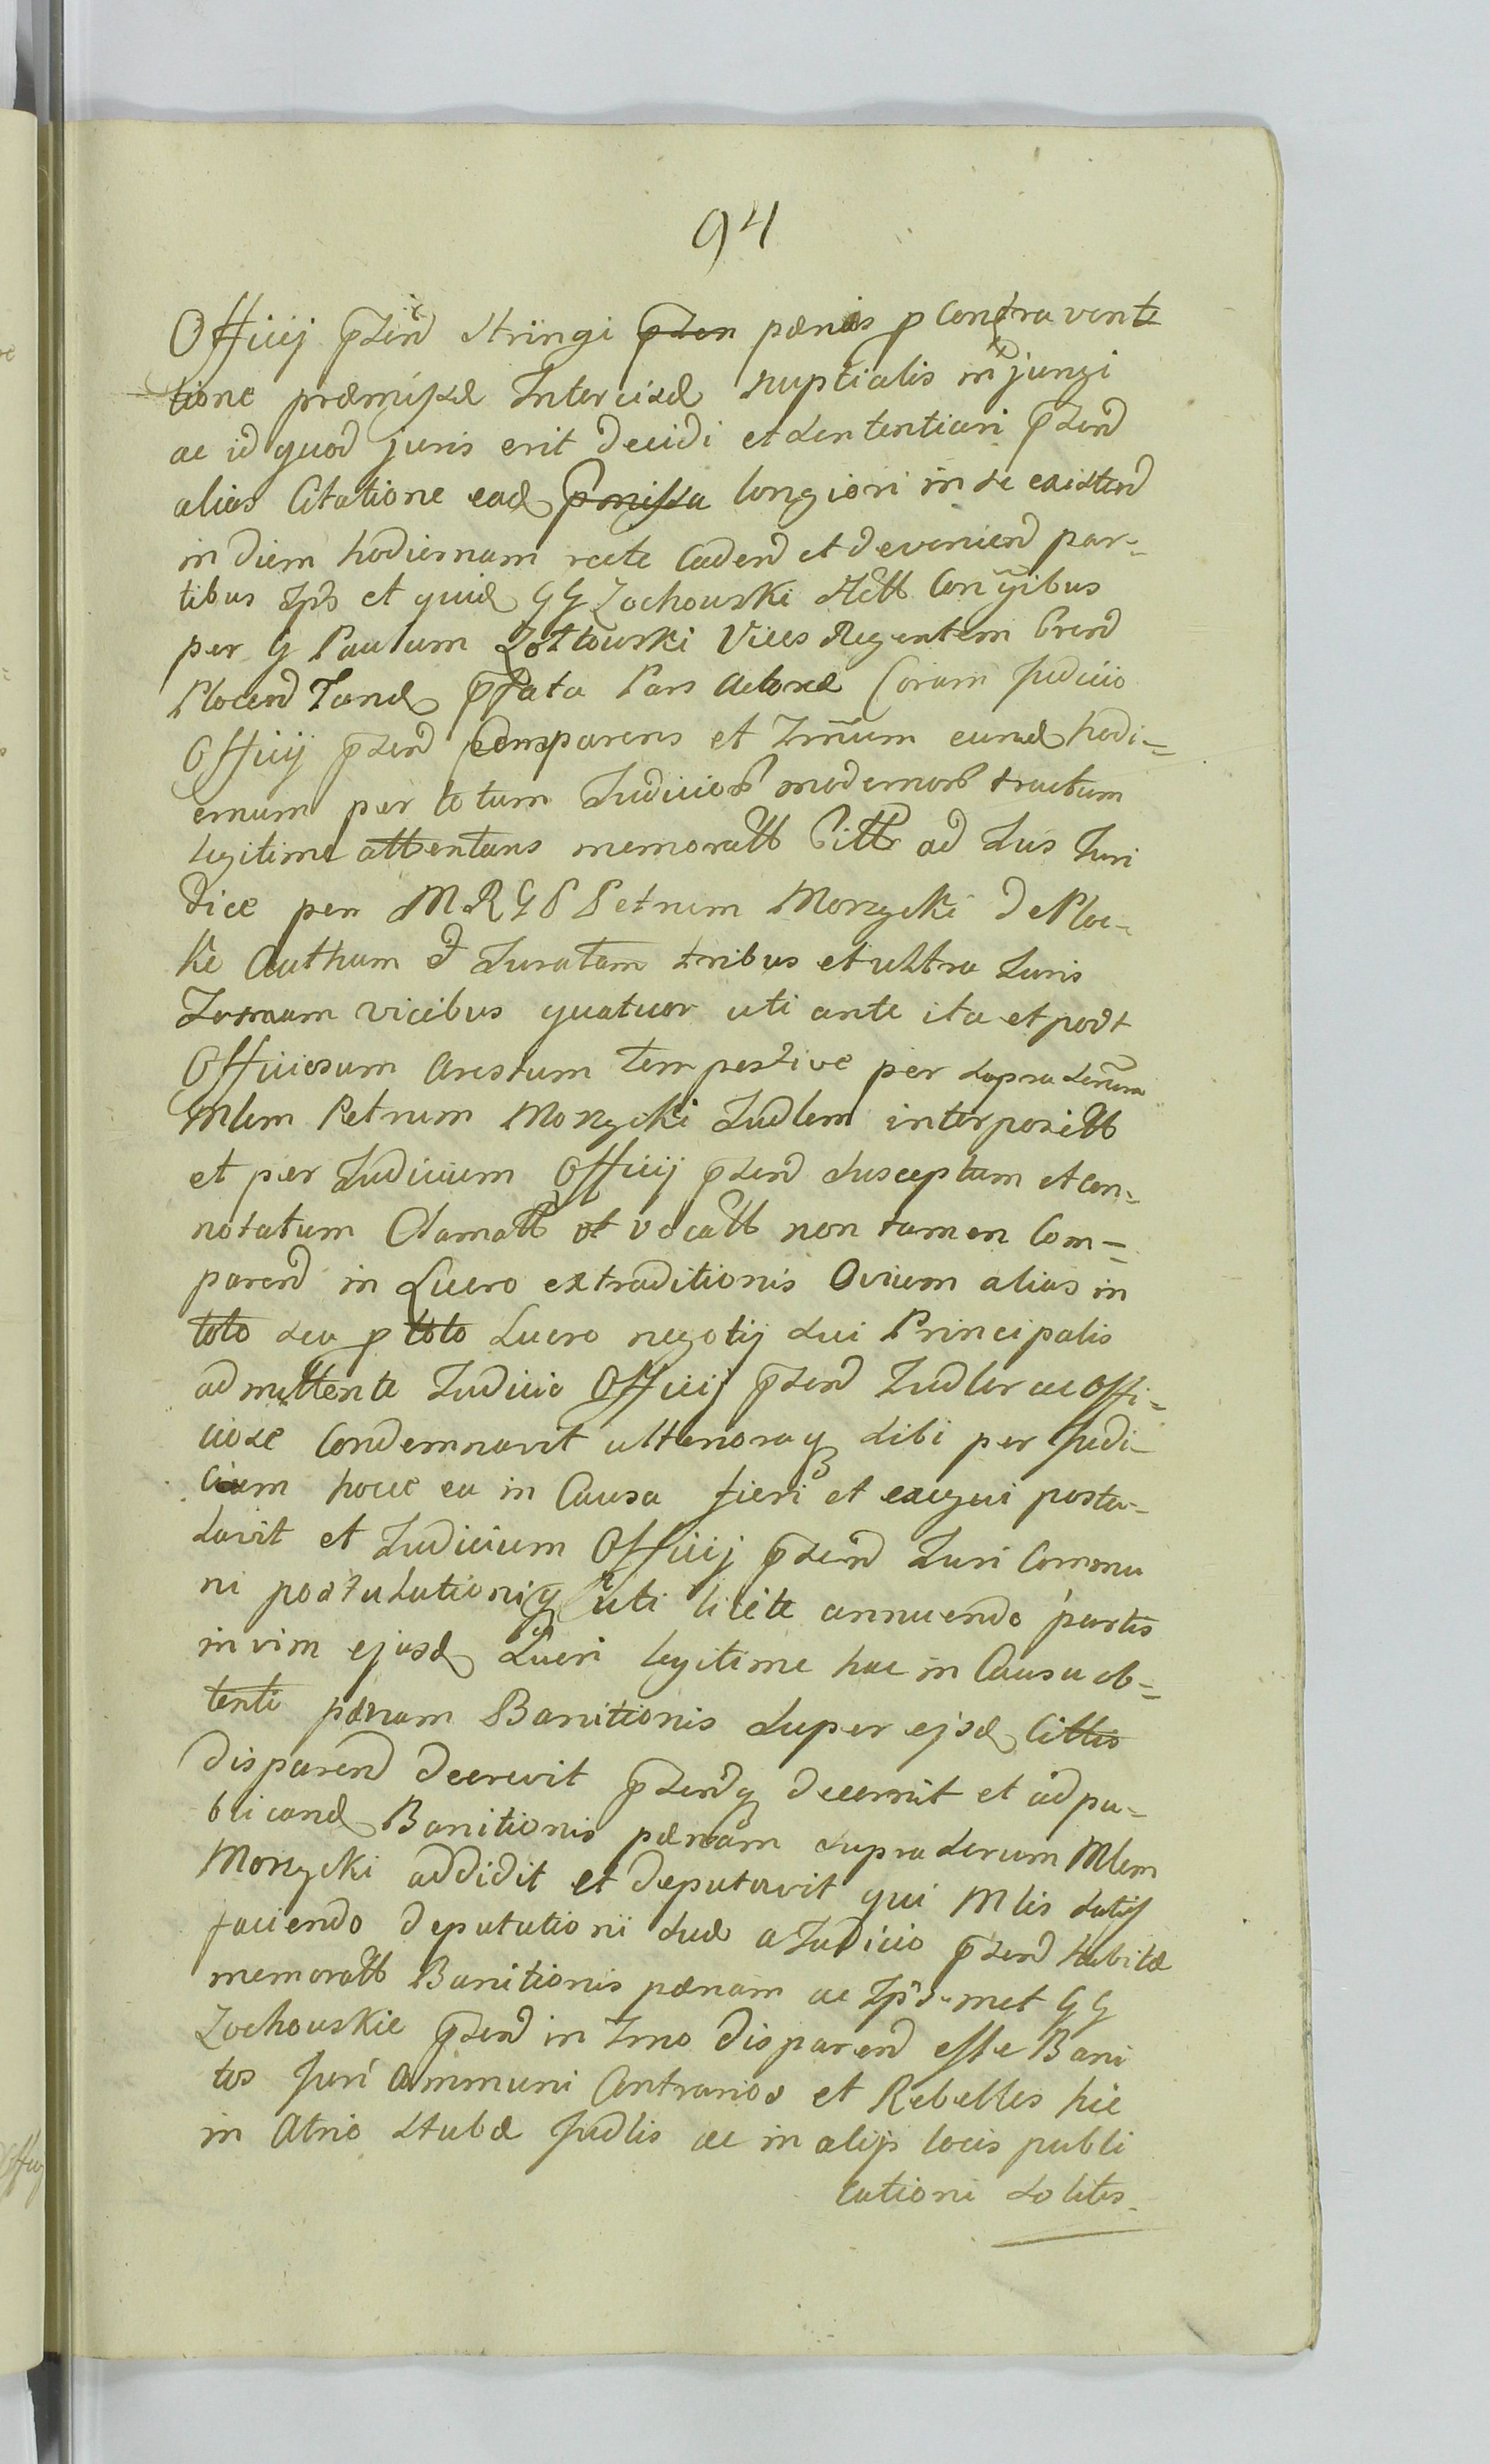 94
Officij pſen̄d stringi pœnas p contraven
tione præmiſsæ Intercisæ nuptialis injungi
ac id quod juris erit decidi et sententiari pſend
alias Citatione ead longiori in se existend
in diem hodiernam recte caden̄d et devenien̄d par-
tibus Ips et quid GG Zochowski Actt Conjgibus
per G Paulum Zołtowski Vices Regentem Cren̄d
Plocen̄d Tand Pars Actorea Coram Judicio
Officij pſen̄d Comparens et Tmūm eund hodi=
ernum per totum Judicior modernor tractum
legitime attentans memoratt Citt ad Jus Juri
dice per M R G P Petrum Morzycki de Ploc-
ke Authum Juratam tribus et ultra Juris
Ternarum vicibus quatuor uti ante ita et post
Officiosum Arestum tempestive per supra
Mlem Petrum Morzycki Judlem interposittt
et per Judicium Officij pſen̄d susceptum et con=
notatum Clamatt et vocatt non tamen Com=
paren̄d in Lucro extraditionis Oviem alias in
toto seu p toto Lucro negotij sui Principalis
admittente Judicio Officij pſen̄d Judler ac Offi=
ciose Condemnavit ulterioraq sibi per Judi-
cium hocce ea in Causa fieri et exequi postu-
lavit et Judicium Officij pſen̄d Juri Commu
ni postulationiq uti licite annuendo partis
in vim ejusd Lucri legitime hac in Causa ob=
tenti pœnam Banitionis super ejsd Cittis
disparen̄d decrevit pſen̄dq decernit et ad pu=
blicand Banitionis pœnam supra Mlem
Morzycki addidit et deputavit qui Mlis satis
faciendo deputationi suæ a Judicio pſen̄d habitæ
memoratt Banitionis pœnam ac Ips-met GG
Zochowskie pſen̄d in Tmo disparen̄d eſse Bani
tos Juri Communi Contrarios et Rebelles hic
in Atrio Stubæ Judlis ac in alijs locis publi
cationi solitis.